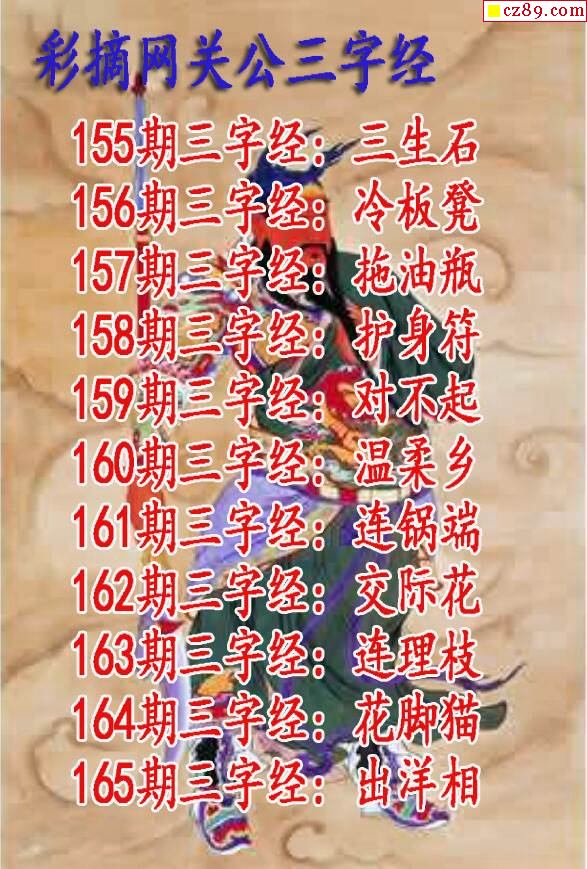 cz89.com
彩摘网关公三字经
155期三字经：三生石
156期三字经：冷板凳
157期三字经：拖油瓶
158期三字经：护身符
159期三字经：对不起
160期三字经：温柔乡
161期三字经：连锅端
162期三字经：交际花
163期三字经：连理枝
164期三字经：花脚猫
165期三字经：出洋相